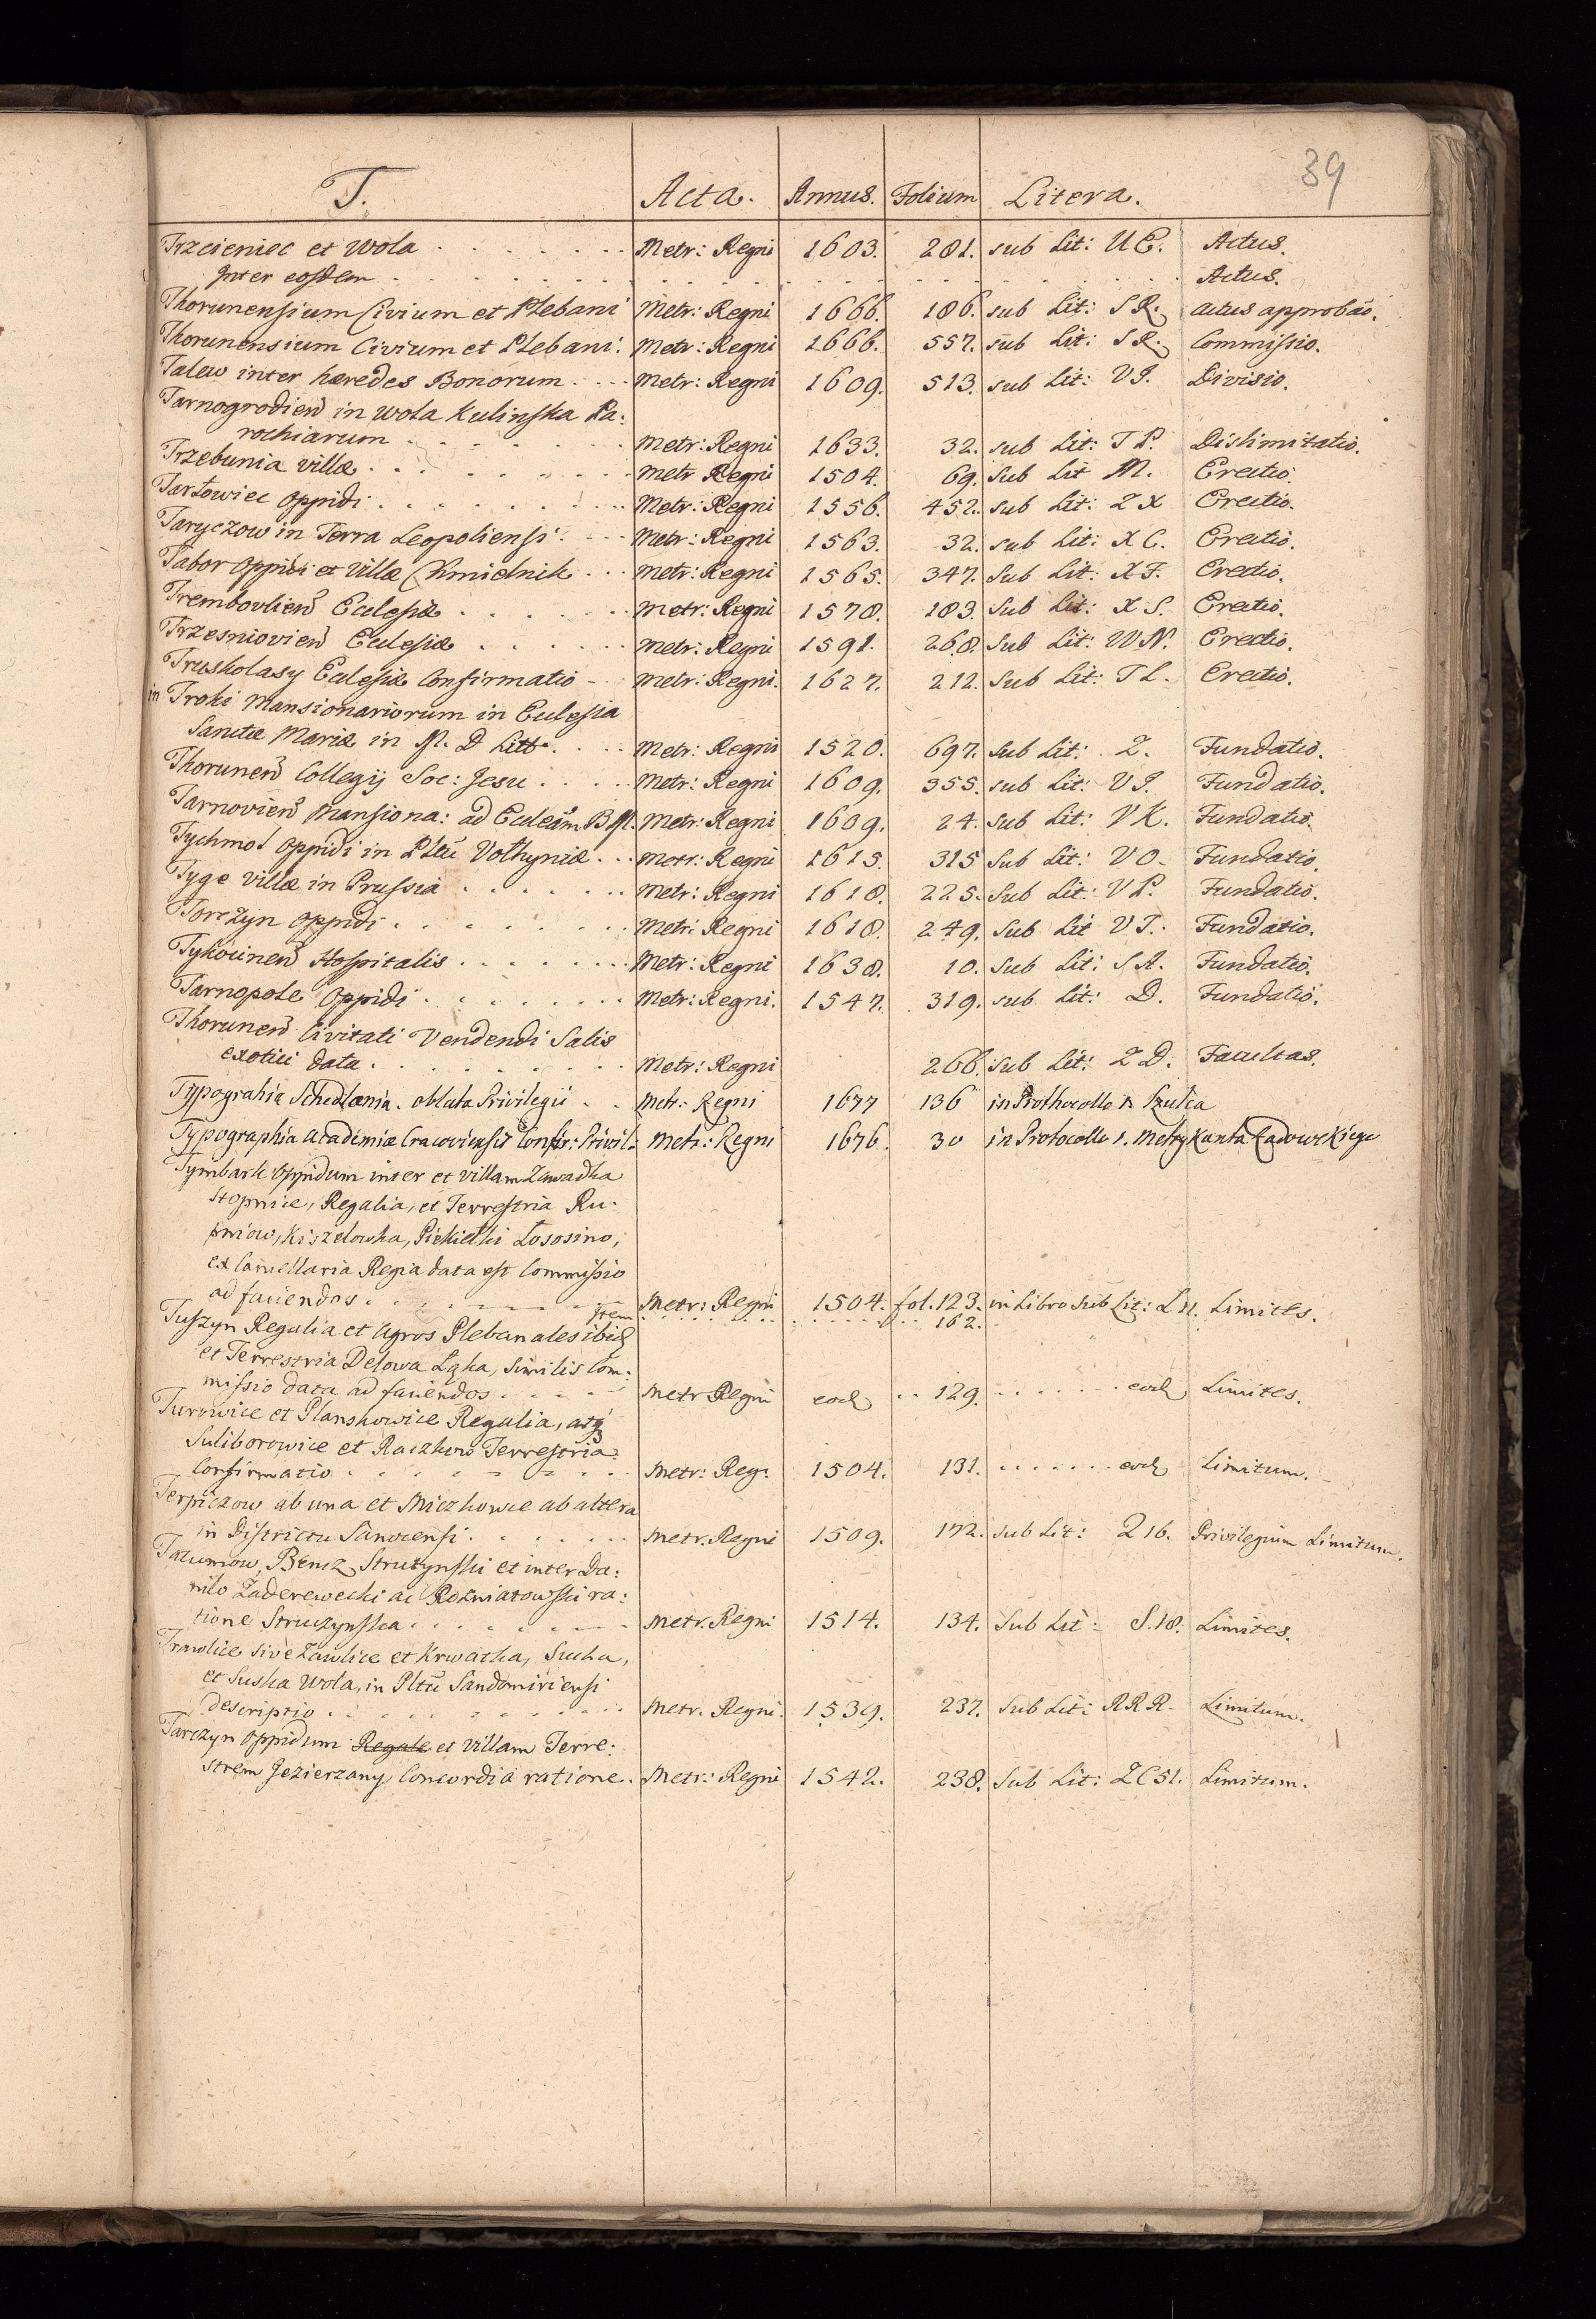 39
T. Acta. Annus. Folium Litera.
Trzcieniec et Wola . . . . . . . Metr: Regni 1603. 281. sub Lit: UE. Actus.
Inter eosdem . . . . . . . Actus.
Thorunensium Civium et Plebani Metr: Regni 1666. 186. sub Lit: SR. Actus approbaō.
Thorunensium Civium et Plebani. Metr: Regni 1666. 557. sub Lit: SR. Commissio.
Talew inter hæredes Bonorum . . . . Metr: Regni 1609. 513. sub Lit: VI. Divisio.
Tarnogrodień in Wola Kulinska Pa:
rochiarum . . . . . . . Metr: Regni 1633. 32. sub Lit: TP. Dislimitatio.
Trzebunia villæ . . . . . . . Metr Regni 1504. 69. Sub Lit M. Erectio.
Tartowiec Oppidi . . . . . . . Metr: Regni 1556. 452. sub Lit: ZX Erectio.
Taryczow in Terra Leopoliensi . . . . Metr: Regni 1563. 32. sub Lit: XC. Erectio.
Tabor Oppidi et Villæ Chmielnik . . . Metr: Regni 1565. 347. Sub Lit: XF. Erectio.
Trembovlień Eccłesiæ . . . . . . Metr: Regni 1578. 183. Sub Lit: XS. Erectio.
Trzesniovień Ecclesiæ . . . . . . Metr: Regni 1591. 268. Sub Lit: WN. Erectio.
Truskolasy Ecclesiæ Confirmatio - Metr: Regni. 1627. 212. Sub Lit: TL. Erectio.
in Troki Mansionariorum in Ecclesia
Sanctæ Mariæ in M. D Litt. . . . Metr: Regni 1520. 697. Sub Lit: Z. Fundatio.
Thoruneń Collegij Soc: Jesu . . . . . Metr: Regni 1609. 355. sub Lit: VI. Fundatio.
Tarnovień Mansiona: ad Ecclēam B M. Metr: Regni 1609. 24. sub Lit: VK. Fundatio.
Tychmol Oppidi in Pltū Vołhyniæ . . . Metr: Regni 1615. 315 Sub Lit: VO. Fundatio.
Tyge villæ in Prussia . . . . . . . Metr: Regni 1618. 225. Sub Lit: VP. Fundatio.
Torczyn Oppidi . . . . . . . Metr: Regni 1618. 249. Sub Lit VT. Fundatio.
Tykocineń Hospitalis . . . . . . . Metr: Regni 1638. 10. Sub Lit: SA. Fundatio.
Tarnopole Oppidi . . . . . . . Metr: Regni. 1547. 319. sub Lit: D. Fundatio.
Thoruneń Civitati Vendendi Salis
exotici data . . . . . . . Metr: Regni 266. Sub Lit: ZD. Facultas.
Typograhia Schedlænia. oblata Privilegii . . Metr: Regni 1677 136 in Prothocollo
Typographia Academiæ Cracoviensis Confir: Privil: Metr: Regni 1676. 30 in Protocollo 1. Metrykanta
Tymbark Oppidum inter et Villam Zawadka
Stopnice, Regalia, et Terrestria Ru:
pniow, Kiszelowka, Piekiełki Łososino,
ex Cancellaria Regia data est Commissio
ad faciendos . . . . . . . Metr: Regni 1504. fol. 123. in Libro Sub Lit: Limites.
Item . . . . . . . 162.
Tuszyn Regalia et Agros Plebanales ibid
et Terrestria Delowa Łąka, Similis Com:
missio data ad faciendos . . . . . Metr Regni eod . . 129. . . . . . . . eod Limites.
Turowice et Planskowice Regalia, atq
Suliborowice et Raczkow Terrestria
Confirmatio . . . . . . . Metr: Reg: 1504. 131. . . . . . . eod Limitum.
Terpiczow ab una et Miczkowce ab altera
in Districtu Sanocensi . . . . . . Metr. Regni 1509. 172. Sub Lit: Z 16. Privilegium Limitum.
Tatumow, Bencz, Strutynski et inter Da:
nilo Zaderewecki ac Rozniatowski ra:
tione Strutynska . . . . . . . Metr. Regni 1514. 134. Sub Lit: S. 18. Limites.
Trawlice Sive Zawlice et Krwatka, Sucha,
et Suska Wola, in Pltū Sandomiriensi
descriptio . . . . . . . Metr. Regni. 1539. 237. Sub Lit: RRR. Limitum.
Tarczyn Oppidum Regale et Villam Terre:
strem Jezierzany Concordia ratione. Metr: Regni 1542. 238. Sub Lit: ZC 51. Limitum.